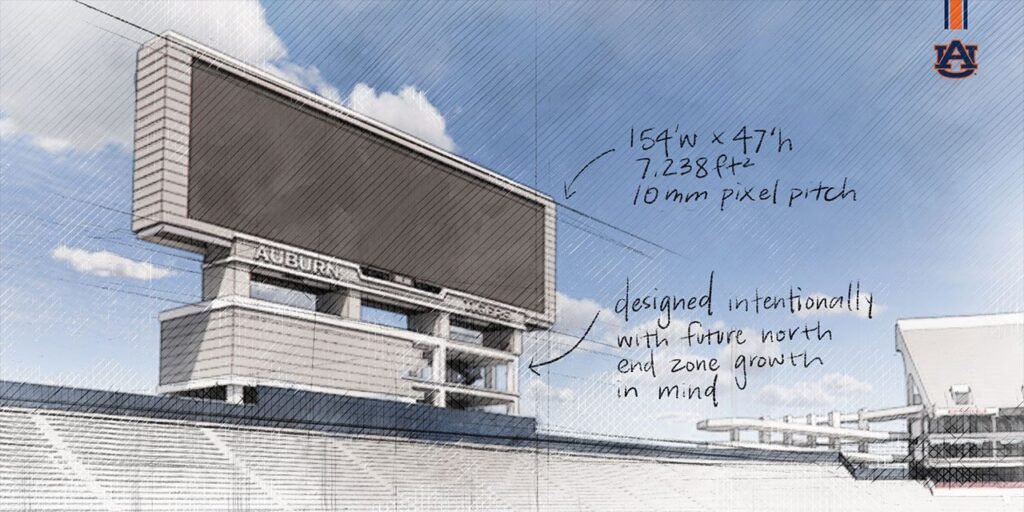 AU
154'w x 47'h
7,238 ft²
10mm pixel pitch
AUBURN
TIGERS
designed intentionally
with future north
end zone growth
in mind